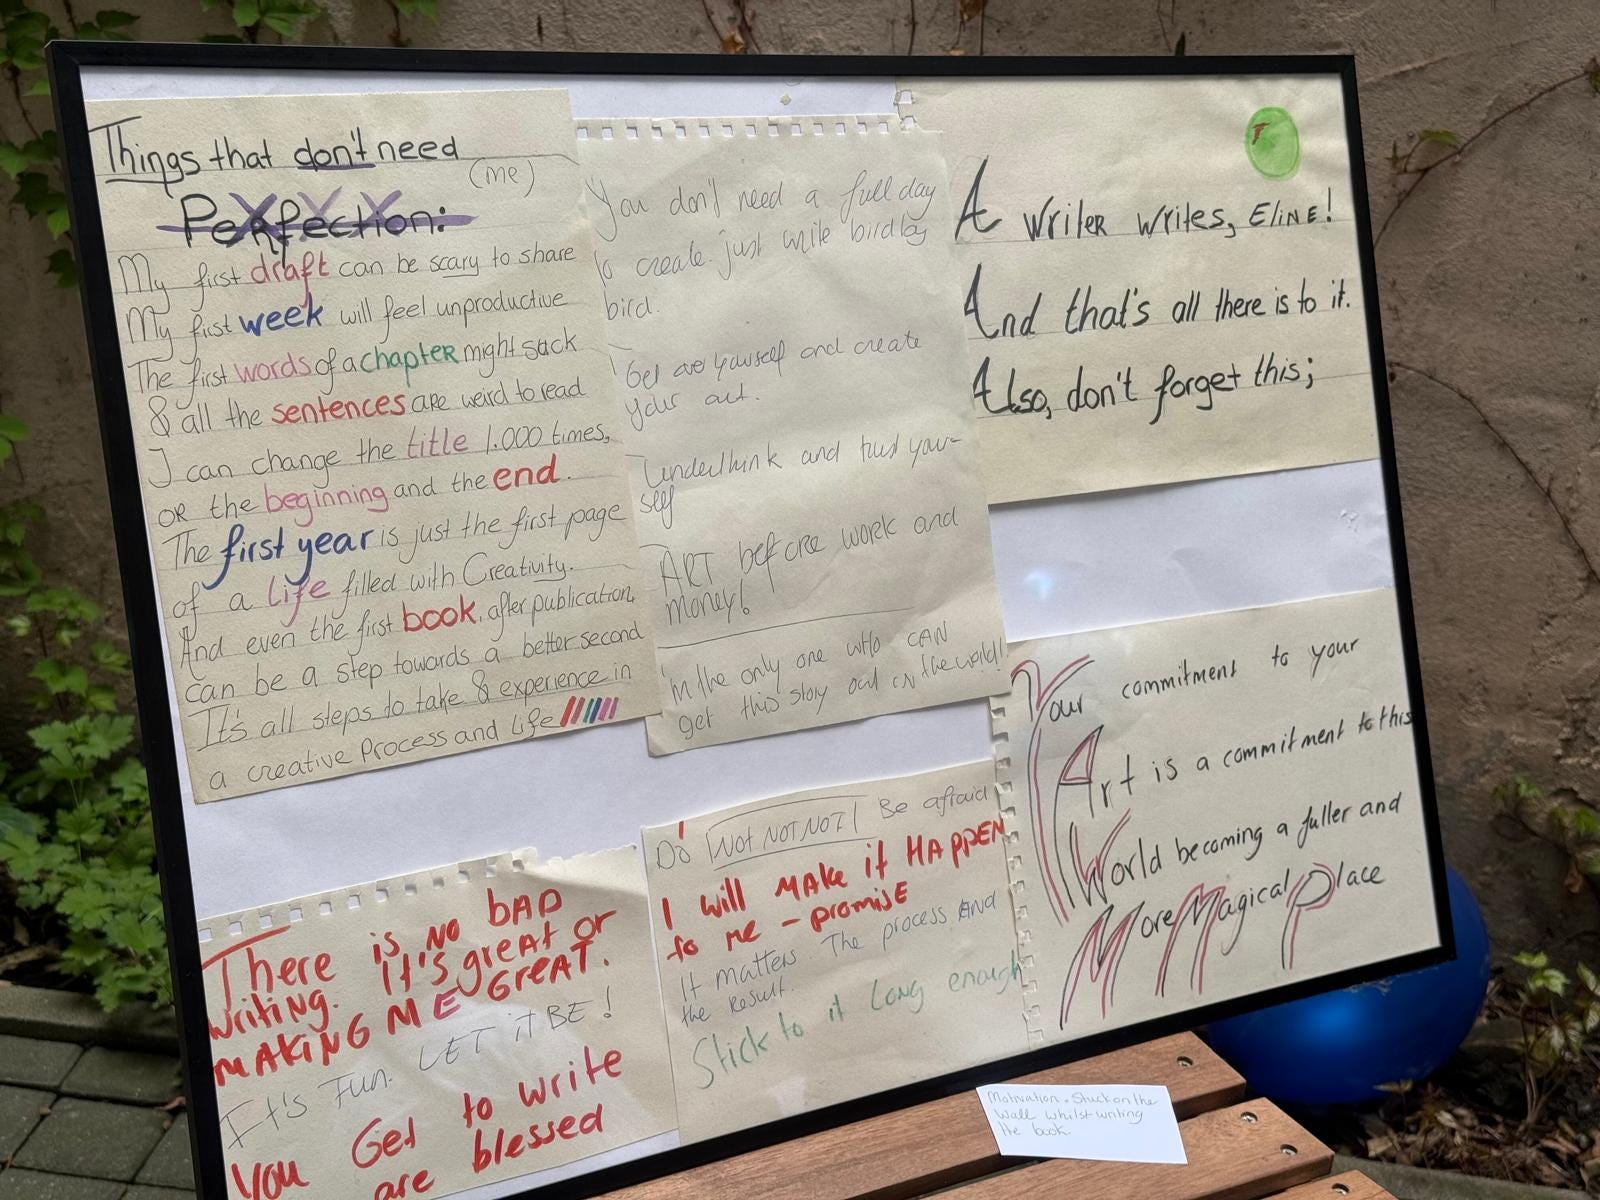 Things that don't need
(me)
Perfection:
My first draft can be scary to share
My first week will feel unproductive
The first words of a chapter might suck
& all the sentences are weird to read
I can change the title 1.000 times,
or the beginning and the end.
The first year is just the first page
of a life filled with Creativity.
And even the first book, after publication,
can be a step towards a better second
It's all steps to take & experience in
a creative process and life
You don't need a full day
to create. just write bird by
bird.
Get over yourself and create
your art.
Underthink and trust your-
self
ART before work and
money!
I'm the only one who CAN
get this story out in the world!
A writer writes, Eline!
And that's all there is to it.
Also, don't forget this;
Your commitment to your
Art is a commitment to this
World becoming a fuller and
More Magical Place
There is no bad
writing. it's great or
making me great.
It's Fun. LET it BE!
You Get to write
are blessed
Do Not NOT NOT! Be afraid
I will make it HAPPEN
to me - promise
It matters. The process and
the result.
Stick to it long enough
Motivation. Stuck on the
wall whilst writing
the book.